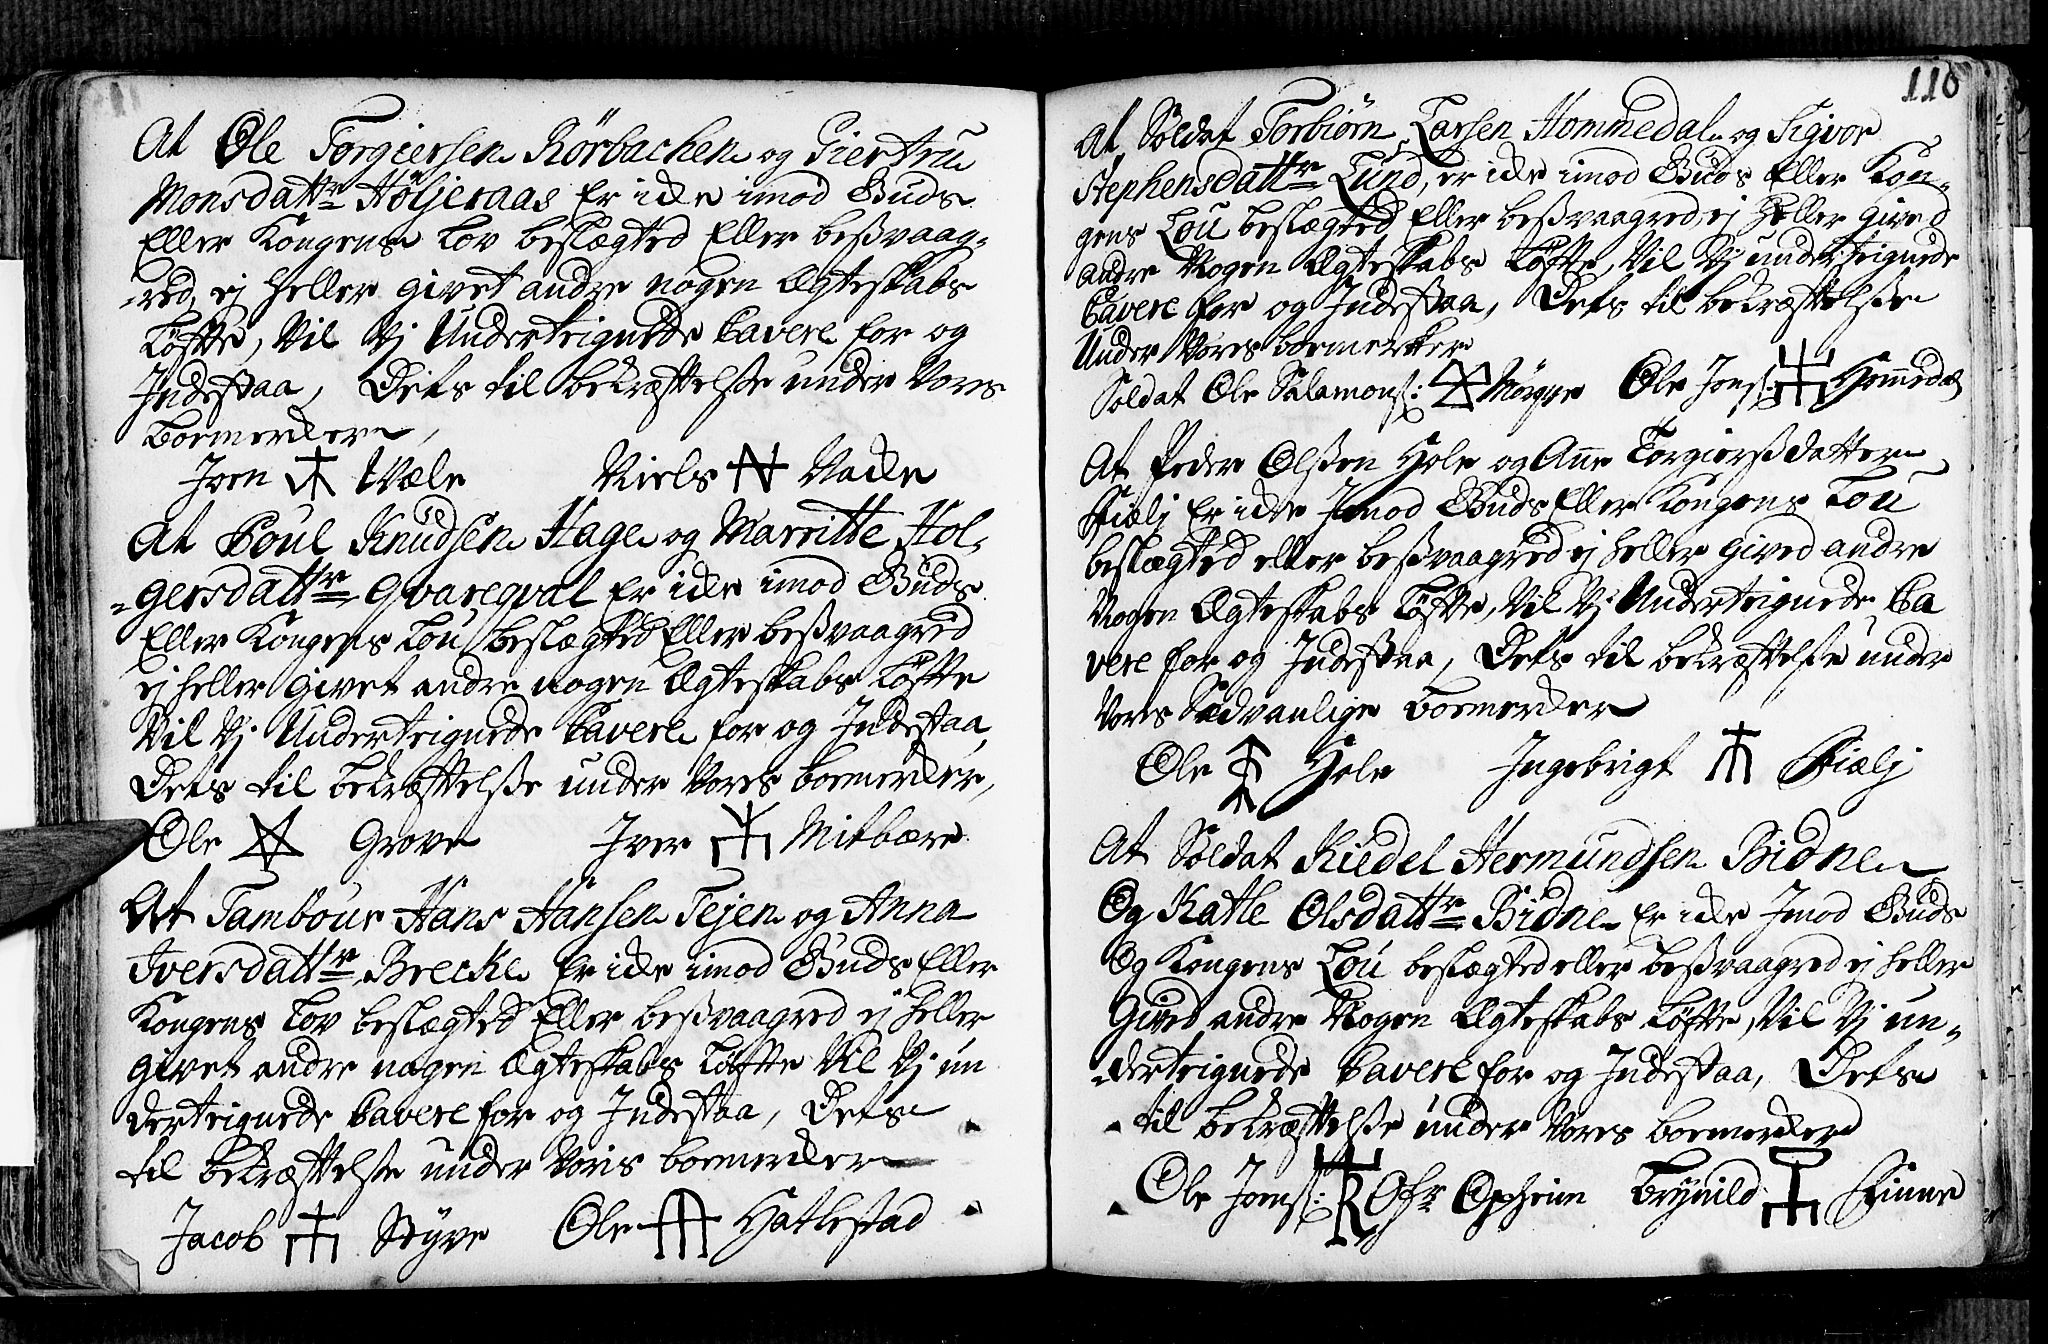 At Ole Torgiersen Rörbachen og Giertru
Monsdattr Höljeraas Er icke imod Guds
Eller Kongens Lov beslægted Eller beßvaag-
-red, ej heller givet andre nogen Ægteskabs
Løfte, Vil Vj Underteignede Cavere for og
Indestaa, Dets til bekræftelse under Vores
Boemercker,
Joen Wæle Niels Nacke
At Poul Knudsen Hage og Marritte Hol-
-gersdattr Qvareqval Er icke imod Guds
Eller Kongens Lou beslægted Eller beßvaagred
ej heller givet andre nogen Ægteskabs Løfte
Vil Vj Underteignede Cavere for og Indestaa,
Dets til bekræftelse under Vores boemercker,
Ole Grove Iver Mitbære
At Tambour Hans Hansen Tejen og Anna
Iversdattr Brecke Er icke imod Guds Eller
Kongens Lov beslægted Eller beßvaagred ej heller
givet andre nogen Ægteskabs Løfte Vil Vj un
derteignede Cavere for og Indestaa, Dets
til bekræftelse under Voris boemercker
Jacob Styve Ole Hatlestad
110
At Soldat Torbiørn Larsen Hommedal og Sigvor
Stephensdattr Lund, er icke imod Guds Eller Kon-
gens Lou beslægted Eller beßvaagred, ej heller gived
andre Nogen Ægteskabs Løfte, Vil Vj underteignede
Cavere for og Indestaa, Dets til bekræftelse
Under Vores boemercker
Soldat Ole Salamons: Ole Jons: Homedal
At Peder Olßen Hole og Ane Torgierßdatter
Fiælj Er icke Imod Guds Eller Kongens Lou
beslægted eller beßvaagred ej heller gived andre
Nogen Ægteskabs Løfte, Vil Vj Underteignede Ca
vere for og Indestaa, Dets til bekræftelse under
Vores Sædvanlige boemercker
Ole Hole Ingebrigt Fiælj
At Soldat Kiedel Hermundsen Bidne
Og Katle Olsdattr Bidne Er icke Imod Guds
Og Kongens Lou beslægted eller beßvaagred ej heller
Gived andre Nogen Ægteskabs Løfte, Vil Vj un-
-derteignede Cavere for og Indestaa, Dets
til bekræftelse under Vores boemercker
Ole Joens: Opheim Brynild Finne